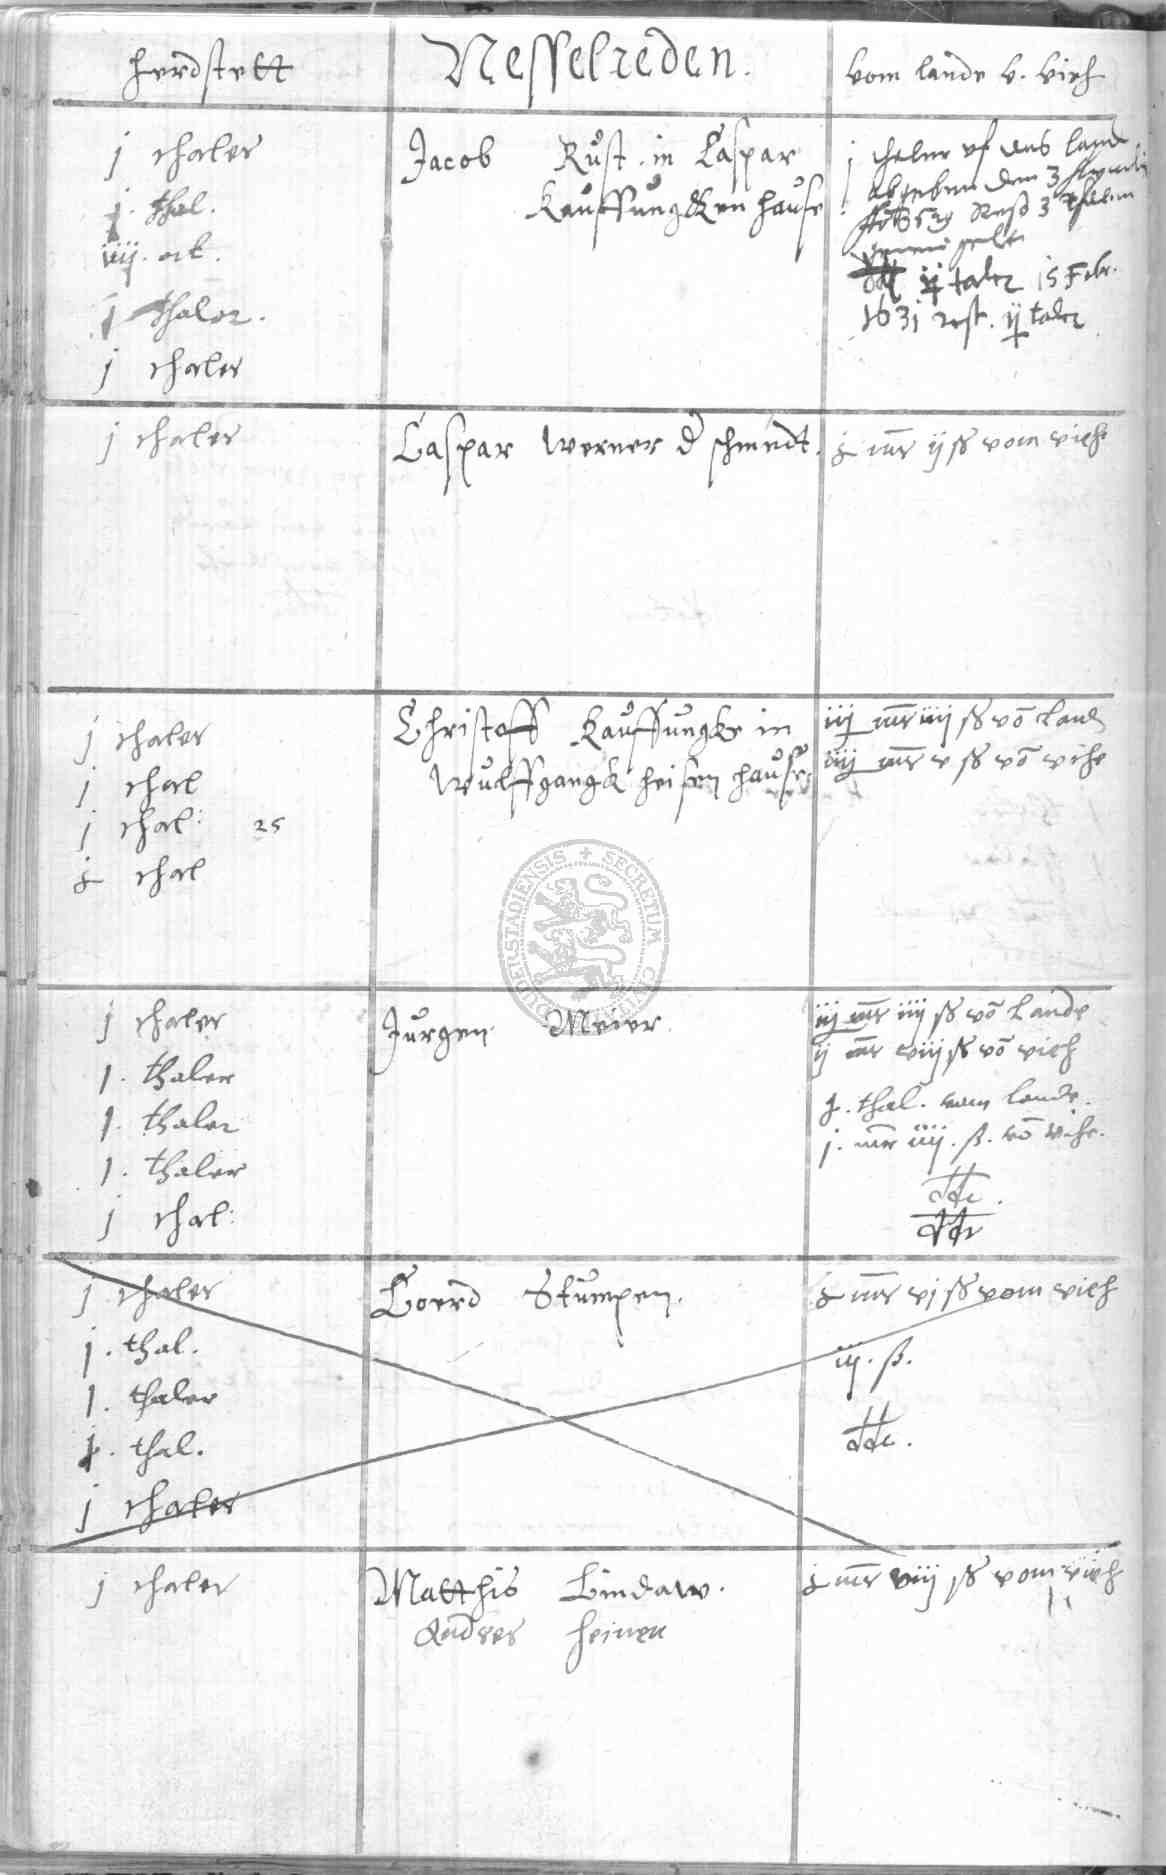 herdstett
Nesselreden.
vom lande v. vieh
j thaler
j. thal.
iiij. ort.
j thaler.
j thaler
Jacob Rust. in Caspar
Kauffungken hause
j thaler uf das land
abgeben den 3
Rest 3
ij taler 15 Febr.
1631 rest. ij taler
j thaler
Caspar Werner d schmedt.
mr ij ß vom viehe
j thaler
j thal
j thal: 25
thal
Christoff Kauffungke in
Wulffgangk heisen hause
iij mr iiij ß vo Land
iiij mr v ß vo vihe
j thaler
j. thaler
j. thaler
j. thaler
j thal:
Jurgen Meier.
iij mr iiij ß vo Lande
ij mr viij ß vo vieh
thal. vom lande.
j. mr iiij. ß. vo vihe.
ddt.
ddt
j thaler
j. thal.
j. thaler
j. thal.
j thaler
Coerd Stumpen.
mr vj ß vom vieh
iij. ß.
ddt.
j thaler
Matthis Lindaw.
Andres heinen
mr viij ß vom vieh
DUDERSTADIENSIS + SECRETUM CIVITATIS